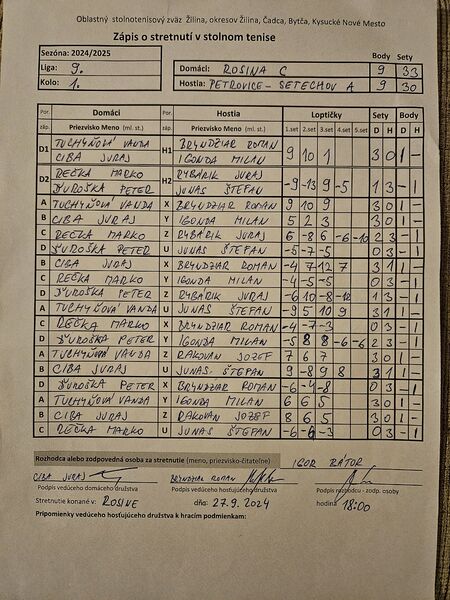 Oblastný stolnotenisový zväz Žilina, okresov Žilina, Čadca, Bytča, Kysucké Nové Mesto
Zápis o stretnutí v stolnom tenise
Sezóna: 2024/2025
Liga: 9.
Kolo: 1.
Body Sety
Domáci: ROSINA C 9 33
Hostia: PETROVICE - SETECHOV A 9 30
Por. Domáci Por. Hostia Loptičky Sety Body
záp. Priezvisko Meno (ml. st.) záp. Priezvisko Meno (ml. st.) 1.set 2.set 3.set 4.set 5.set D H D H
D1 TUCHYŇOVÁ VANDA H1 BRYNDZIAR ROMAN 9 10 1 3 0 1 -
CIBA JURAJ IGONDA MILAN
D2 REČKA MARKO H2 RYBÁRIK JURAJ -9 -13 9 -5 1 3 - 1
ĎUROŠKA PETER JUNAS ŠTEFAN
A TUCHYŇOVÁ VANDA X BRYNDZIAR ROMAN 9 10 9 3 0 1 -
B CIBA JURAJ Y IGONDA MILAN 5 2 3 3 0 1 -
C REČKA MARKO Z RYBÁRIK JURAJ 6 -8 6 -6 -10 2 3 - 1
D ĎUROŠKA PETER U JUNAS ŠTEFAN -5 -7 -5 0 3 - 1
B CIBA JURAJ X BRYNDZIAR ROMAN -4 7 12 7 3 1 1 -
C REČKA MARKO Y IGONDA MILAN -4 -5 -5 0 3 - 1
D ĎUROŠKA PETER Z RYBÁRIK JURAJ -6 10 -8 -12 1 3 - 1
A TUCHYŇOVÁ VANDA U JUNAS ŠTEFAN -9 5 10 9 3 1 1 -
C REČKA MARKO X BRYNDZIAR ROMAN -4 -7 -3 0 3 - 1
D ĎUROŠKA PETER Y IGONDA MILAN -5 8 8 -6 -6 2 3 - 1
A TUCHYŇOVÁ VANDA Z RAKOVAN JOZEF 7 6 7 3 0 1 -
B CIBA JURAJ U JUNAS ŠTEFAN 9 -8 9 8 3 1 1 -
D ĎUROŠKA PETER X BRYNDZIAR ROMAN -6 -4 -8 0 3 - 1
A TUCHYŇOVÁ VANDA Y IGONDA MILAN 6 6 5 3 0 1 -
B CIBA JURAJ Z RAKOVAN JOZEF 8 6 5 3 0 1 -
C REČKA MARKO U JUNAS ŠTEFAN -6 -6 -3 0 3 - 1
Rozhodca alebo zodpovedná osoba za stretnutie (meno, priezvisko-čitateľne) IGOR BÁTOR
CIBA JURAJ BRYNDZIAR ROMAN
Podpis vedúceho domáceho družstva Podpis vedúceho hosťujúceho družstva Podpis rozhodcu - zodp. osoby
Stretnutie konané v: ROSINE dňa: 27.9.2024 hodina 18:00
Pripomienky vedúceho hosťujúceho družstva k hracím podmienkam: